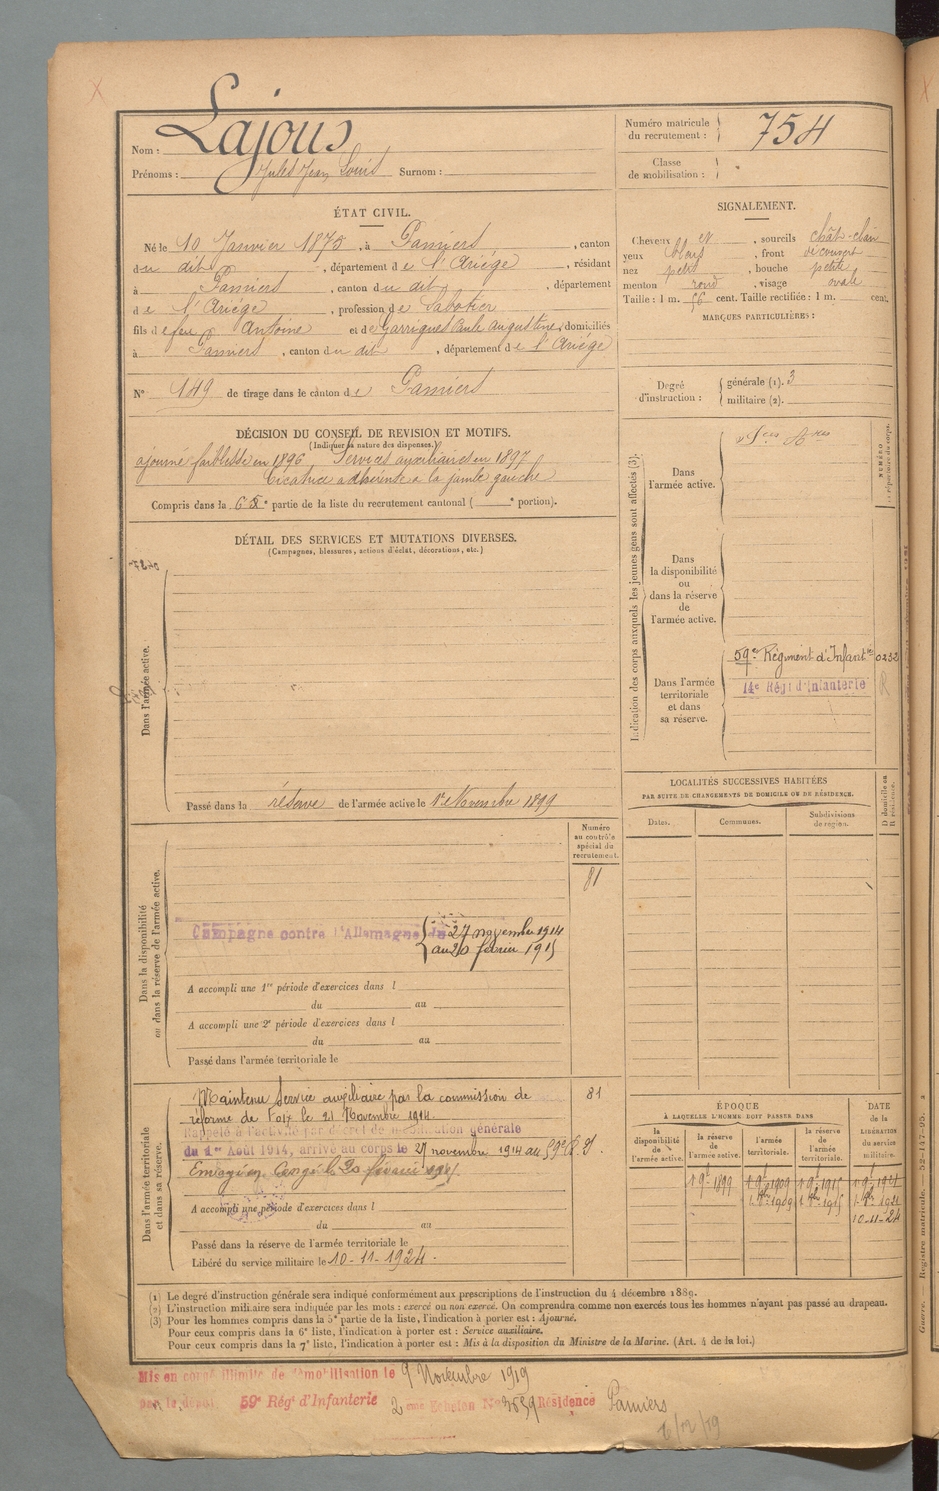 Nom : Lajous
Prénoms : Jules Jean Louis Surnom :
Numéro matricule du recrutement : 754
Classe de mobilisation :
ÉTAT CIVIL.
Né le 10 Janvier 1875, à Pamiers, canton
du dit, département de l'Ariège, résidant
à Pamiers, canton du dit, département
de l'Ariège, profession de Sabotier
fils de feu Antoine et de Garrigues Anne Augustine, domiciliés
à Pamiers, canton du dit, département de l'Ariège
N° 149 de tirage dans le canton de Pamiers
SIGNALEMENT.
Cheveux et, sourcils chât-clair
yeux bleus, front découvert
nez petit, bouche petite
menton rond, visage ovale
Taille : 1 m. 66 cent. Taille rectifiée : 1 m. cent.
MARQUES PARTICULIÈRES :
Degré d'instruction : générale (1). 3
militaire (2).
DÉCISION DU CONSEIL DE REVISION ET MOTIFS.
(Indiquer la nature des dispenses.)
ajourné faiblesse en 1896 Services auxiliaires en 1897
Cicatrice adhérente à la jambe gauche
Compris dans la 6e partie de la liste du recrutement cantonal ( e portion).
DÉTAIL DES SERVICES ET MUTATIONS DIVERSES.
(Campagnes, blessures, actions d'éclat, décorations, etc.)
Dans l'armée active.
Passé dans la réserve de l'armée active le 1er Novembre 1899
Dans la disponibilité ou dans la réserve de l'armée active.
Numéro au contrôle spécial du recrutement.
81
Campagne contre l'Allemagne du 27 novembre 1914
au 20 février 1915
A accompli une 1re période d'exercices dans l
du au
A accompli une 2e période d'exercices dans l
du au
Passé dans l'armée territoriale le
Dans l'armée territoriale et dans sa réserve.
Maintenu Service auxiliaire par la commission de 81
réforme de Foix le 21 Novembre 1914.
Rappelé à l'activité par décret de mobilisation générale
du 1er Août 1914, arrivé au corps le 27 novembre 1914 au 59e
Envoyé en Congé le 20 février 1915.
A accompli une période d'exercices dans l
du au
Passé dans la réserve de l'armée territoriale le
Libéré du service militaire le 10-11-1924.
Indication des corps auxquels les jeunes gens sont affectés (3).
Dans l'armée active.
Dans la disponibilité ou dans la réserve de l'armée active.
Dans l'armée territoriale et dans sa réserve.
59e Régiment d'Infantie 0232
14e Régt d'Infanterie R
LOCALITÉS SUCCESSIVES HABITÉES
PAR SUITE DE CHANGEMENTS DE DOMICILE OU DE RÉSIDENCE.
Dates. Communes. Subdivisions de région. D domicile ou R résidence.
ÉPOQUE
À LAQUELLE L'HOMME DOIT PASSER DANS
la disponibilité de l'armée active. la réserve de l'armée active. l'armée territoriale. la réserve de l'armée territoriale.
DATE de la LIBÉRATION du service militaire.
1899 1909 1915 1921
10-11-24
(1) Le degré d'instruction générale sera indiqué conformément aux prescriptions de l'instruction du 4 décembre 1889.
(2) L'instruction militaire sera indiquée par les mots : exercé ou non exercé. On comprendra comme non exercés tous les hommes n'ayant pas passé au drapeau.
(3) Pour les hommes compris dans la 5e partie de la liste, l'indication à porter est : Ajourné.
Pour ceux compris dans la 6e liste, l'indication à porter est : Service auxiliaire.
Pour ceux compris dans la 7e liste, l'indication à porter est : Mis à la disposition du Ministre de la Marine. (Art. 4 de la loi.)
Mis en congé illimité de démobilisation le 9 Novembre 1919
par le dépôt 59e Régt d'Infanterie 2eme Echelon N° 3659 Résidence Pamiers
Guerre. — Registre matricule. — 52-1147-95.